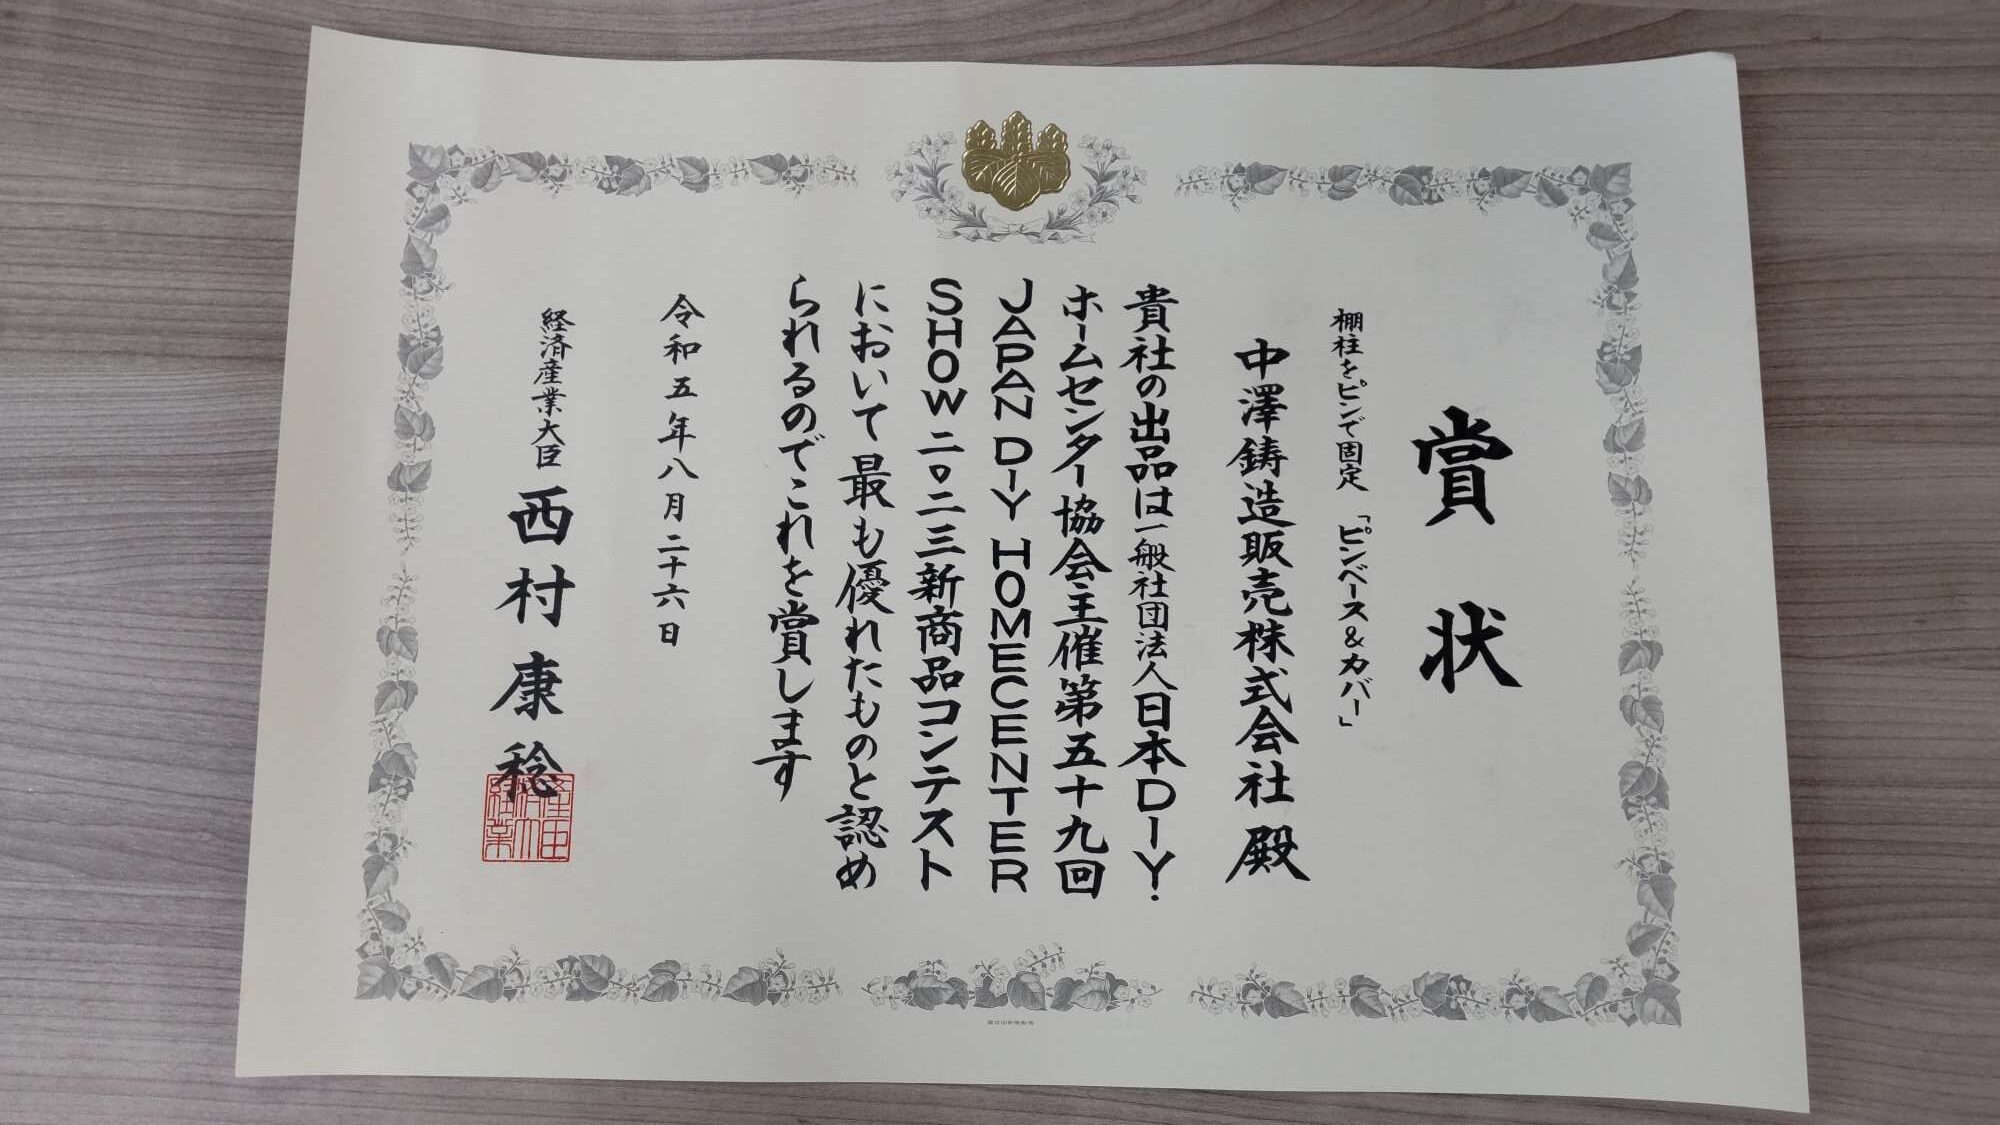 賞状
棚柱をピンで固定「ピンベース&カバー」
中澤鋳造販売株式会社殿
貴社の出品は一般社団法人日本DIY・
ホームセンター協会主催第五十九回
JAPAN DIY HOMECENTER
SHOW二〇二三新商品コンテスト
において最も優れたものと認め
られるのでこれを賞します
令和五年八月二十六日
経済産業大臣 西村康稔